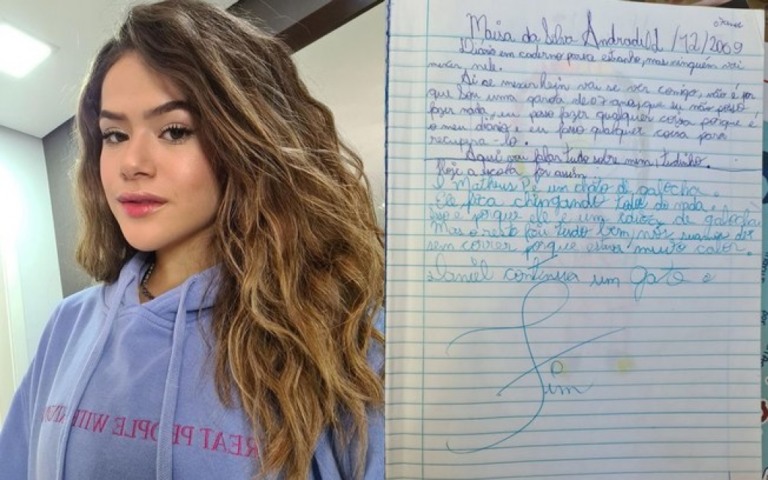 REAT PEOPLE WITH
Maisa da Silva Andrade /12/2009
Diário em caderno estranho, mas ninguém vai
mexer, nele.
Ai se mexer hein vai se ver comigo, não é por
que sou uma de 7 anos, que eu não posso
fazer nada, eu posso fazer qualquer coisa porque é
o meu diário e eu faço qualquer coisa para
recupera-lo.
Aqui vou falar tudo sobre mim, tudinho.
Hoje a escola foi assim
O Matheus P. é um chato de galocha.
Ele fica chingando todos do nada,
é porque ele é um de galocha
Mas o resto foi tudo bem, nós suamos
sem correr porque estava muito calor.
Daniel continua um gato e
Fim